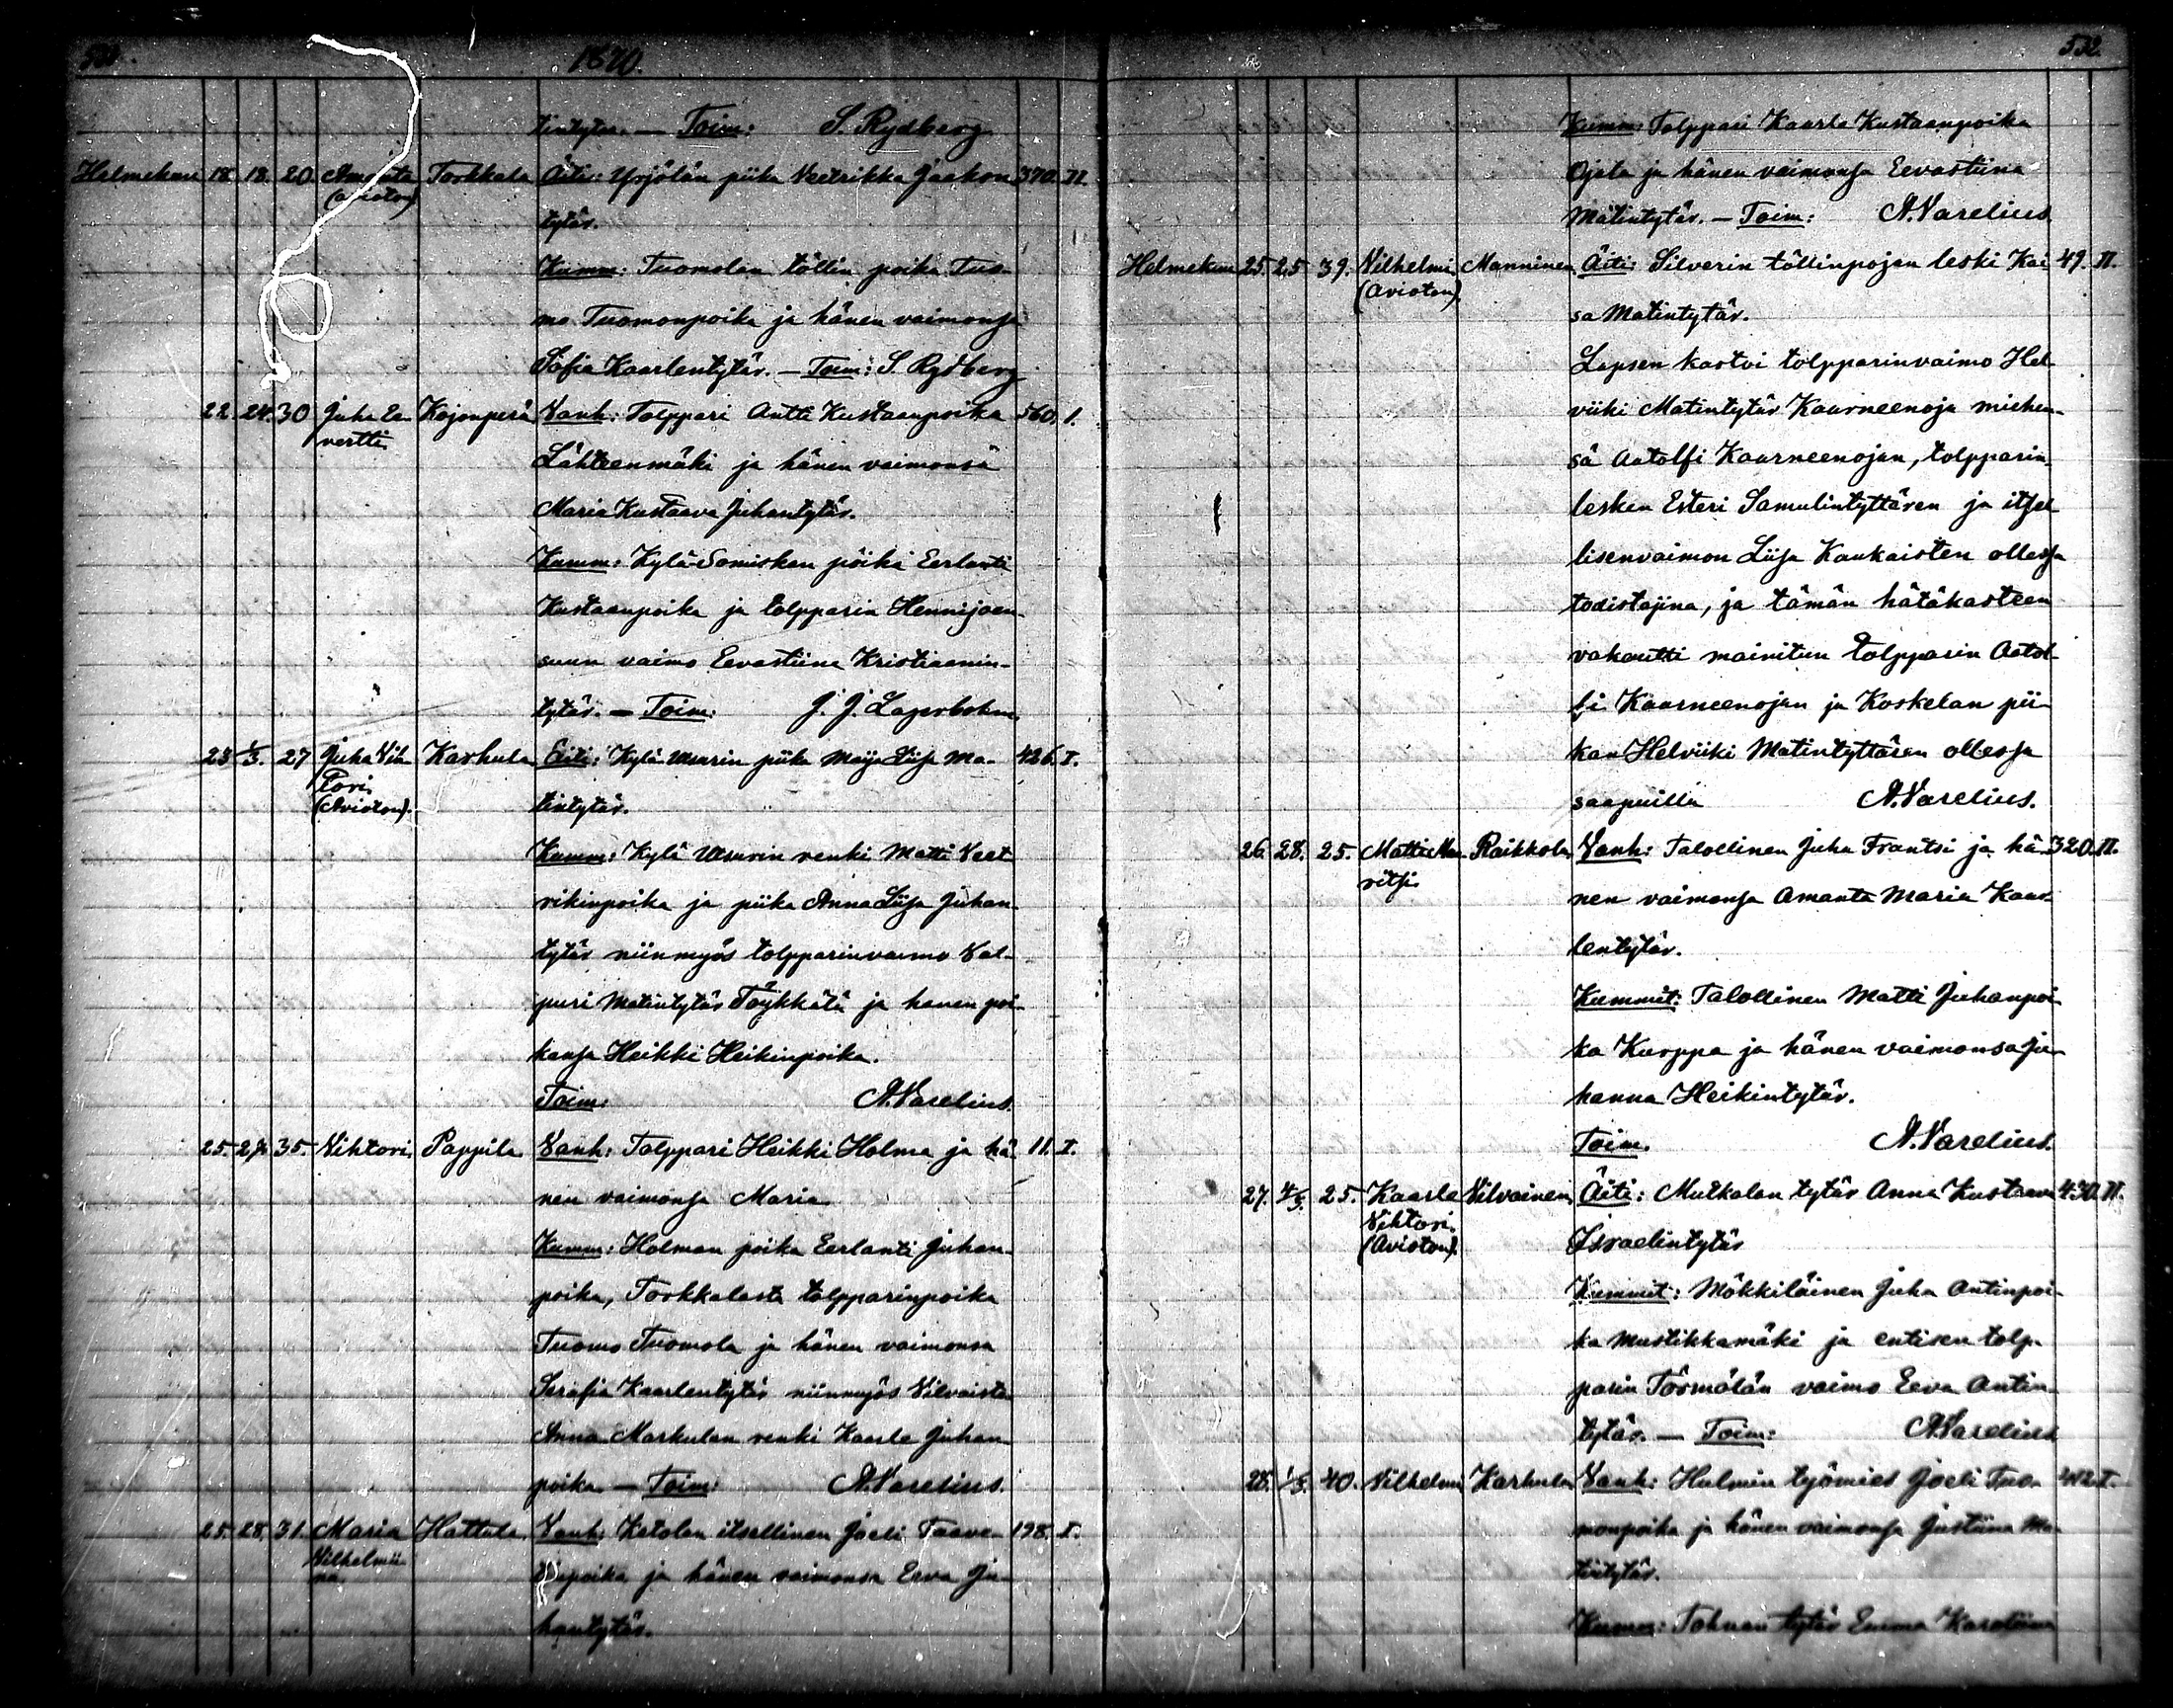 1870.
tintytär. — Toim: S. Rydberg
Helmekuu 18. 18. 20. Amanta Torkkala Äiti: Yrjölän piika Veetrikka Jaakon- 370. II.
(avioton) tytär.
Kumm: Tuomolan töllin poika Tuo-
mo Tuomonpoika ja hänen vaimonsa
Sofia Kaarlentytär. — Toim: S. Rydberg
22. 24. 30 Juha Ee- Kojonperä Vanh: Tolppari Antti Kustaanpoika 560. I.
vertti. Lähteenmäki ja hänen vaimonsä
Maria Kustaava Juhantytär.
Kumm: Kylä-Somiskan pöiki Eerlanti
Kustaanpoika ja tolpparin Hennijoen-
suun vaimo Eevastiina Kristiaanin-
tytär. — Toim: J. J. Lagerbohm
23 1/3. 27 Juha Vih- Karhula Äiti: Kylä Uusurin piika Maija Liisa Ma- 426. I.
tori (Avioton). tintytär.
Kumm: Kylä Uusurin renki Matti Veet-
rikinpoika ja piika Anna Liisa Juhan-
tytär niinmyös tolpparinvaimo Val-
puri Matintytär Töykkälä ja hänen poi-
kansa Heikki Heikinpoika.
Toim: A. Varelius.
25. 27. 35. Vihtori. Pappila. Vanh: Tolppari Heikki Holma ja hä- 11. I.
nen vaimonsa Maria
Kumm: Holman poika Eerlanti Juhan-
poika, Torkkalasta tolpparinpoika
Tuomo Tuomola ja hänen vaimonsa
Serafia Kaarlentytär niinmyös Vilvaista
Anna Markulan renki Kaarle Juhan-
poika — Toim: A. Varelius.
25. 28. 31. Maria Hattula. Vanh: Ketolan itsellinen Joeli Taave- 198. I.
Vilhelmii- tinpoika ja hänen vaimonsa Eeva Ju-
na. hantytär.
532.
Kumm: Tolppari Kaarle Kustaanpoika
Ojala ja hänen vaimonsa Eevastiina
Matintytär. — Toim: A. Varelius.
Helmekuu 25. 25 39. Vilhelmi Manninen Äiti: Silverin töllinpojan leski Kai- 49. II.
(avioton). sa Matintytär.
Lapsen kastoi tolpparinvaimo Hel-
viiki Matintytär Kaarneenoja miehen-
sä Aatolfi Kaarneenojan, tolpparin-
lesken Esteri Samulintyttären ja itsel-
lisenvaimon Liisa Kaukaisten ollessa
todistajina, ja tämän hätäkasteen
vakautti mainitun tolpparin Aatol-
fi Kaarneenojan ja Koskelan pii-
kan Helviiki Matintyttären ollessa
saapuilla A. Varelius.
26. 28. 25. Matti Mau- Raikkola Vanh: Talollinen Juha Frantsi ja hä- 320. II.
ritsi. nen vaimonsa Amanta Maria Kaar-
lentytär.
Kummit: Talollinen Matti Juhanpoi-
ka Kurppa ja hänen vaimonsa Ju-
hanna Heikintytär.
Toim. A. Varelius.
27. 4/3. 25. Kaarle Vilvainen Äiti: Mulkalan tytär Anna Kustaava 430. II.
Vihtori. (Avioton). Israelintytär
Kummit: Mökkiläinen Juha Antinpoi-
ka Mustikkamäki ja entisen tolp-
parin Törmälän vaimo Eeva Antin-
tytär. — Toim: A. Varelius
28. 1/3. 40. Vilhelmi Karhula Vanh: Hulmin työmies Joeli Tuo- 412 I.
monpoika ja hänen vaimonsa Justiina Ma-
tintytär.
Kumm: Tahnan tytär Emma Karoliina